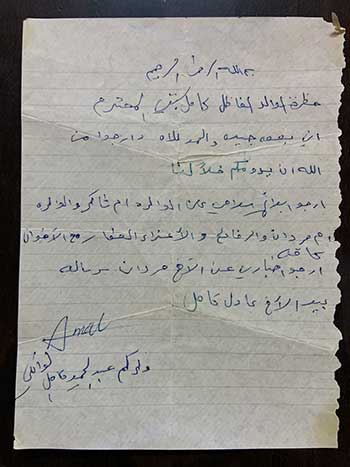 بسم الله الرحمن الرحيم
حظرة الوالد الفاظل كامل بشقي المحترم
اني بصحه جيده والحمد لله وارجوا من
الله ان يدومكم
ارجو سلامي الى الوالده ام شاكر والوالده
ام مردان والأعزاء الصغار مع الأخوال
كافة
ارجو اخباري عن الاخ مردان برساله
بيد الأخ عادل كامل
Amal
ولدكم عبد الحميد كامل